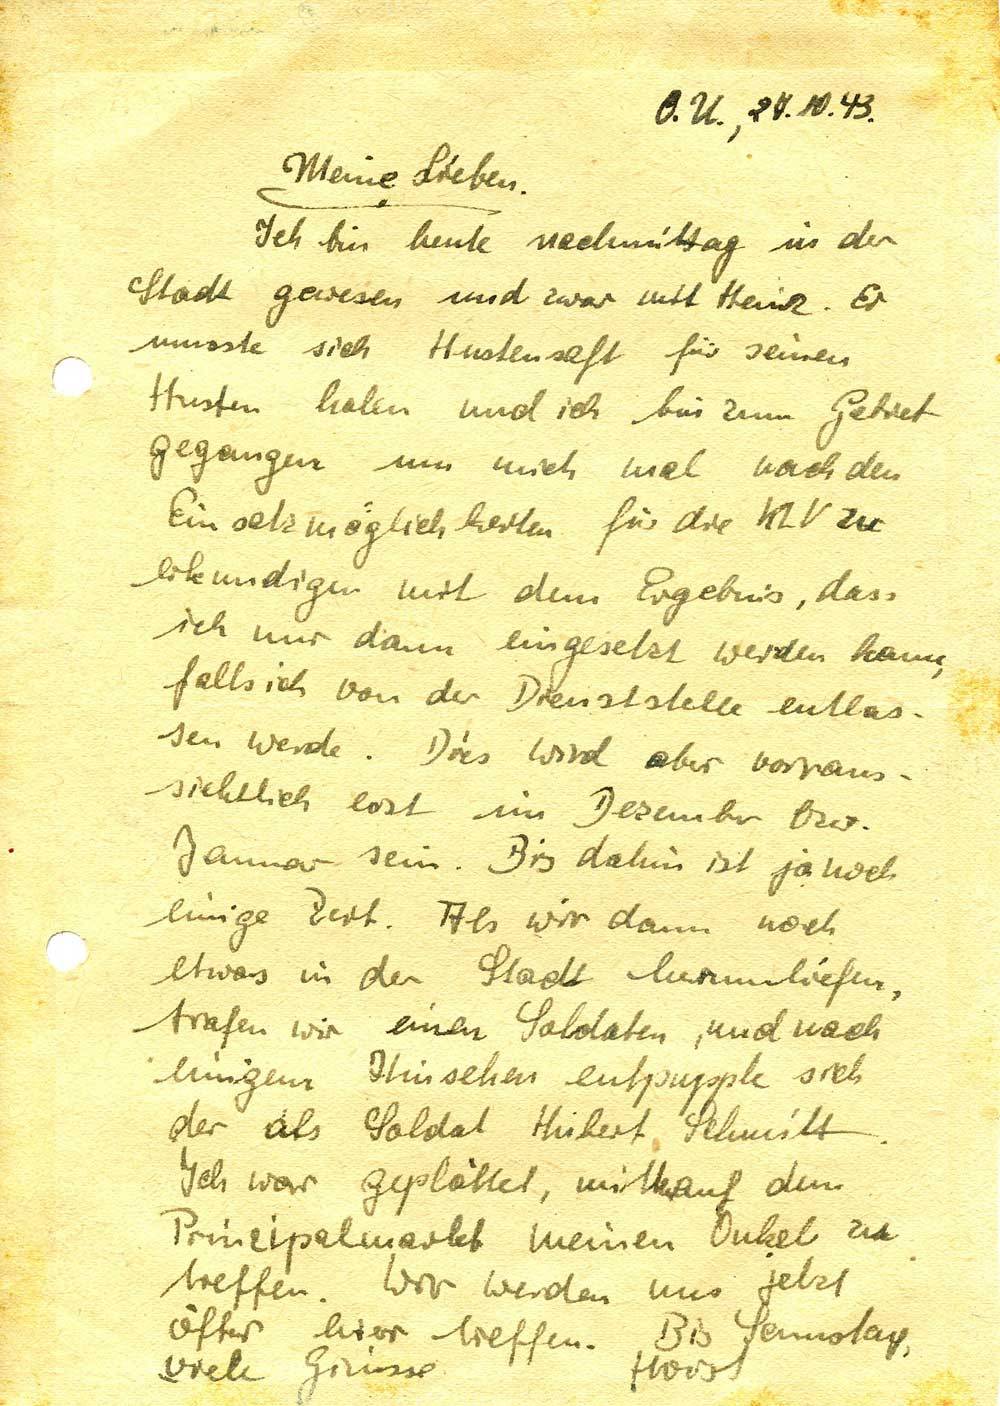 O.U., 27.10.43.
Meine Lieben.
Ich bin heute nachmittag in der
Stadt gewesen und zwar mit Heinz. Er
musste sich Hustensaft für seinen
Husten holen und ich bin zum Gebiet
gegangen um mich mal nach den
Einsatzmöglichkeiten für die KLV zu
erkundigen mit dem Ergebnis, dass
ich nur dann eingesetzt werden kann,
falls ich von der Dienststelle entlas-
sen werde. Dies wird aber vorraus-
sichtlich erst im Dezember bzw.
Januar sein. Bis dahin ist ja noch
einige Zeit. Als wir dann noch
etwas in der Stadt herumliefen,
trafen wir einen Soldaten, und nach
einigem Hinsehen entpuppte sich
der als Soldat Hubert Schmitt.
Ich war geplättet, mitten auf dem
Prinzipalmarkt meinen Onkel zu
treffen. Wir werden uns jetzt
öfter hier treffen. Bis Samstag,
viele Grüsse Horst